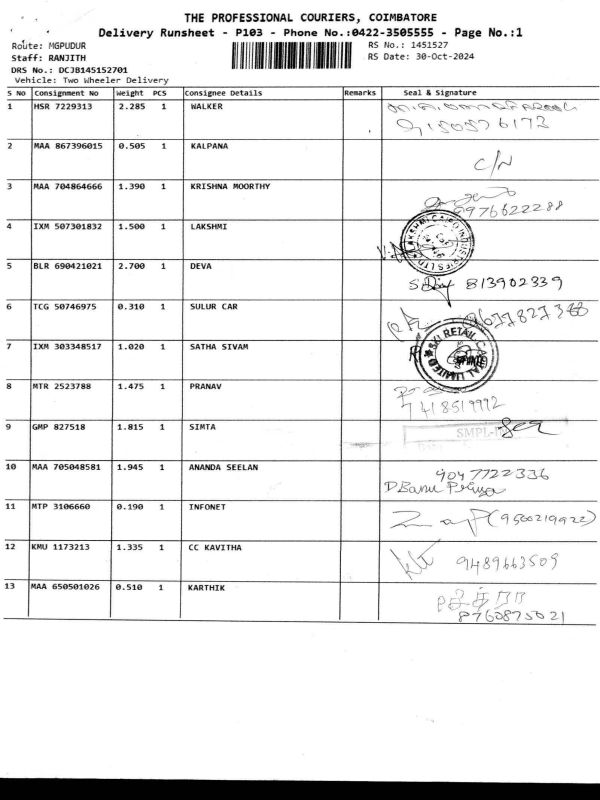 THE PROFESSIONAL COURIERS, COIMBATORE
Delivery Runsheet - P103 - Phone No.:0422-3505555 - Page No.:1
Route: MGPUDUR
RS No.: 1451527
Staff: RANJITH
RS Date: 30-Oct-2024
DRS No.: DCJB145152701
Vehicle: Two Wheeler Delivery
S No Consignment No Weight PCS Consignee Details Remarks Seal & Signature
1 HSR 7229313 2.285 1 WALKER
9150576172
2 MAA 867396015 0.505 1 KALPANA
C/N
3 MAA 704864666 1.390 1 KRISHNA MOORTHY
9976622288
4 IXM 507301832 1.500 1 LAKSHMI
5 BLR 690421021 2.700 1 DEVA
813902339
6 TCG 50746975 0.310 1 SULUR CAR
7 IXM 303348517 1.020 1 SATHA SIVAM
SKI RETAIL CAPITAL LIMITED
8 MTR 2523788 1.475 1 PRANAV
7418519992
9 GMP 827518 1.815 1 SIMTA
SMPL-
10 MAA 705048581 1.945 1 ANANDA SEELAN
9047722336
D Banu Priya
11 MTP 3106660 0.190 1 INFONET
(9500219922)
12 KMU 1173213 1.335 1 CC KAVITHA
9489663509
13 MAA 650501026 0.510 1 KARTHIK
8760875021